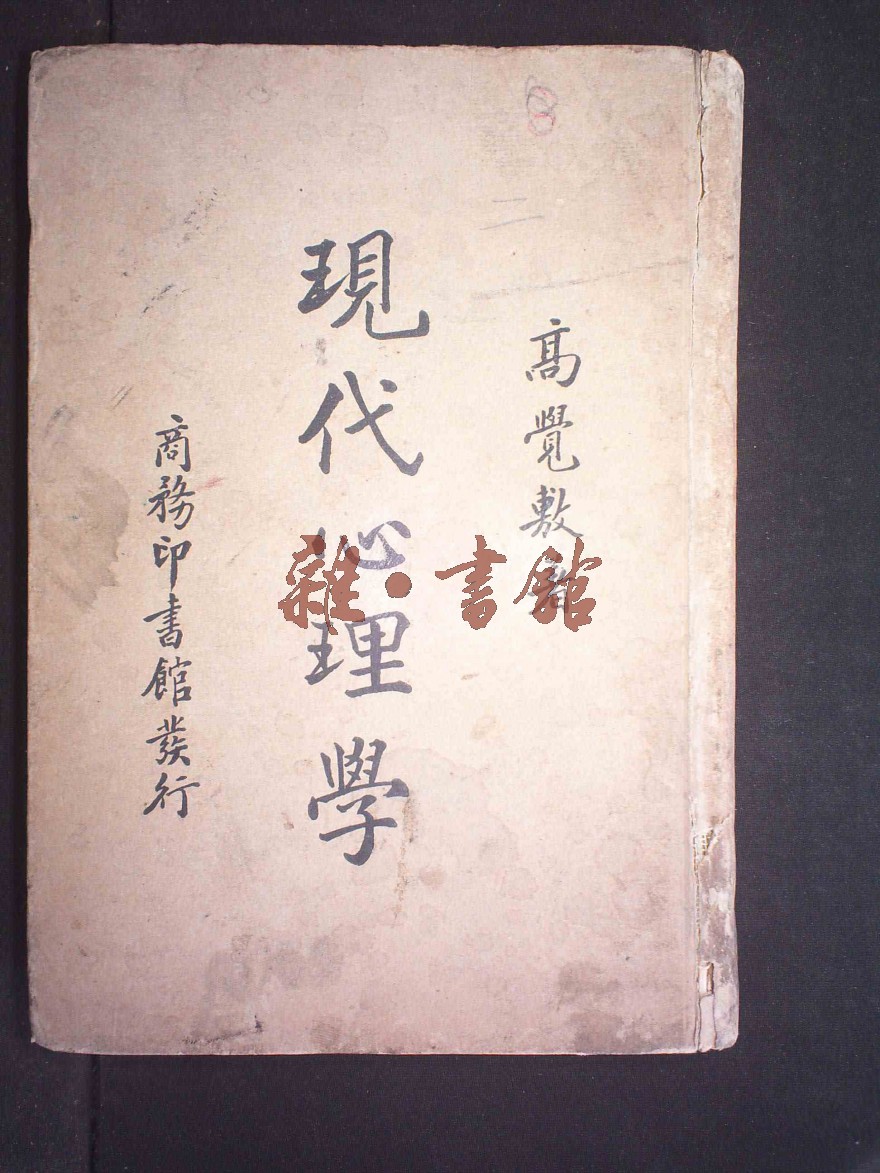 高覺敷著
現代心理學
商務印書館發行
雜·書館
二